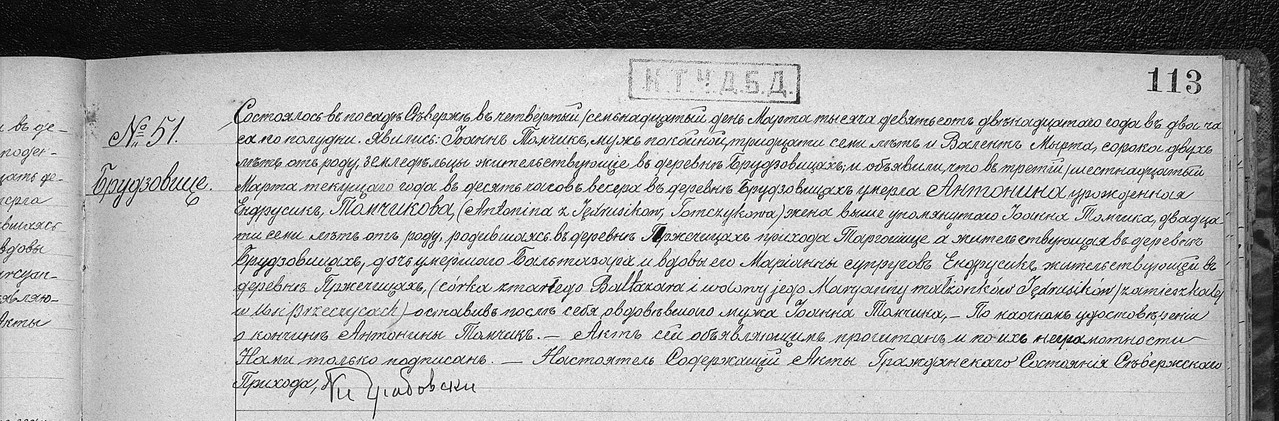 Н.Т.Ч.Д.Б.Д.
113
№ 51.
Брудзовице.
Состоялось въ посадѣ Сѣвержѣ въ четвертый /семнадцатый день Марта тысяча девятьсотъ двѣнадцатаго года въ два ча
са по полудни. Явились: Іоаннъ Томчикъ, мужъ покойной, тридцати семи лѣтъ и Валентъ Мырта, сорока двухъ
лѣтъ отъ роду, земледѣльцы жительствующіе въ деревнѣ Брудзовицахъ, и объявили, что въ третій /шестнадцатый
Марта текущаго года въ десять часовъ вечера въ деревнѣ Брудзовицахъ умерла Антонина урожденная
Ендрусикъ, Томчикова, (Antonina z Jędrusików, Tomczykowa) жена выше упомянутаго Іоанна Томчика, двадца
ти семи лѣтъ отъ роду, родившаяся въ деревнѣ Пржечицахъ прихода Таргошице а жительствующая въ деревнѣ
Брудзовицахъ, дочь умершаго Бальтазара и вдовы его Маріанны супруговъ Ендрусикъ, жительствующей въ
деревнѣ Пржечицахъ, (córka zmarłego Baltazara i wdowy jego Maryanny małżonków Jędrusików / zamieszkałej
we wsi Przeczycach) оставивъ послѣ себя овдовѣвшаго мужа Іоанна Томчика, — По наочномъ удостовѣреніи
о кончинѣ Антонины Томчикъ. — Актъ сей объявляющимъ прочитанъ и по ихъ неграмотности
Нами только подписанъ. — Настоятель Содержащій Акты Гражданскаго Состоянія Сѣвержскаго
Прихода, Грабовски